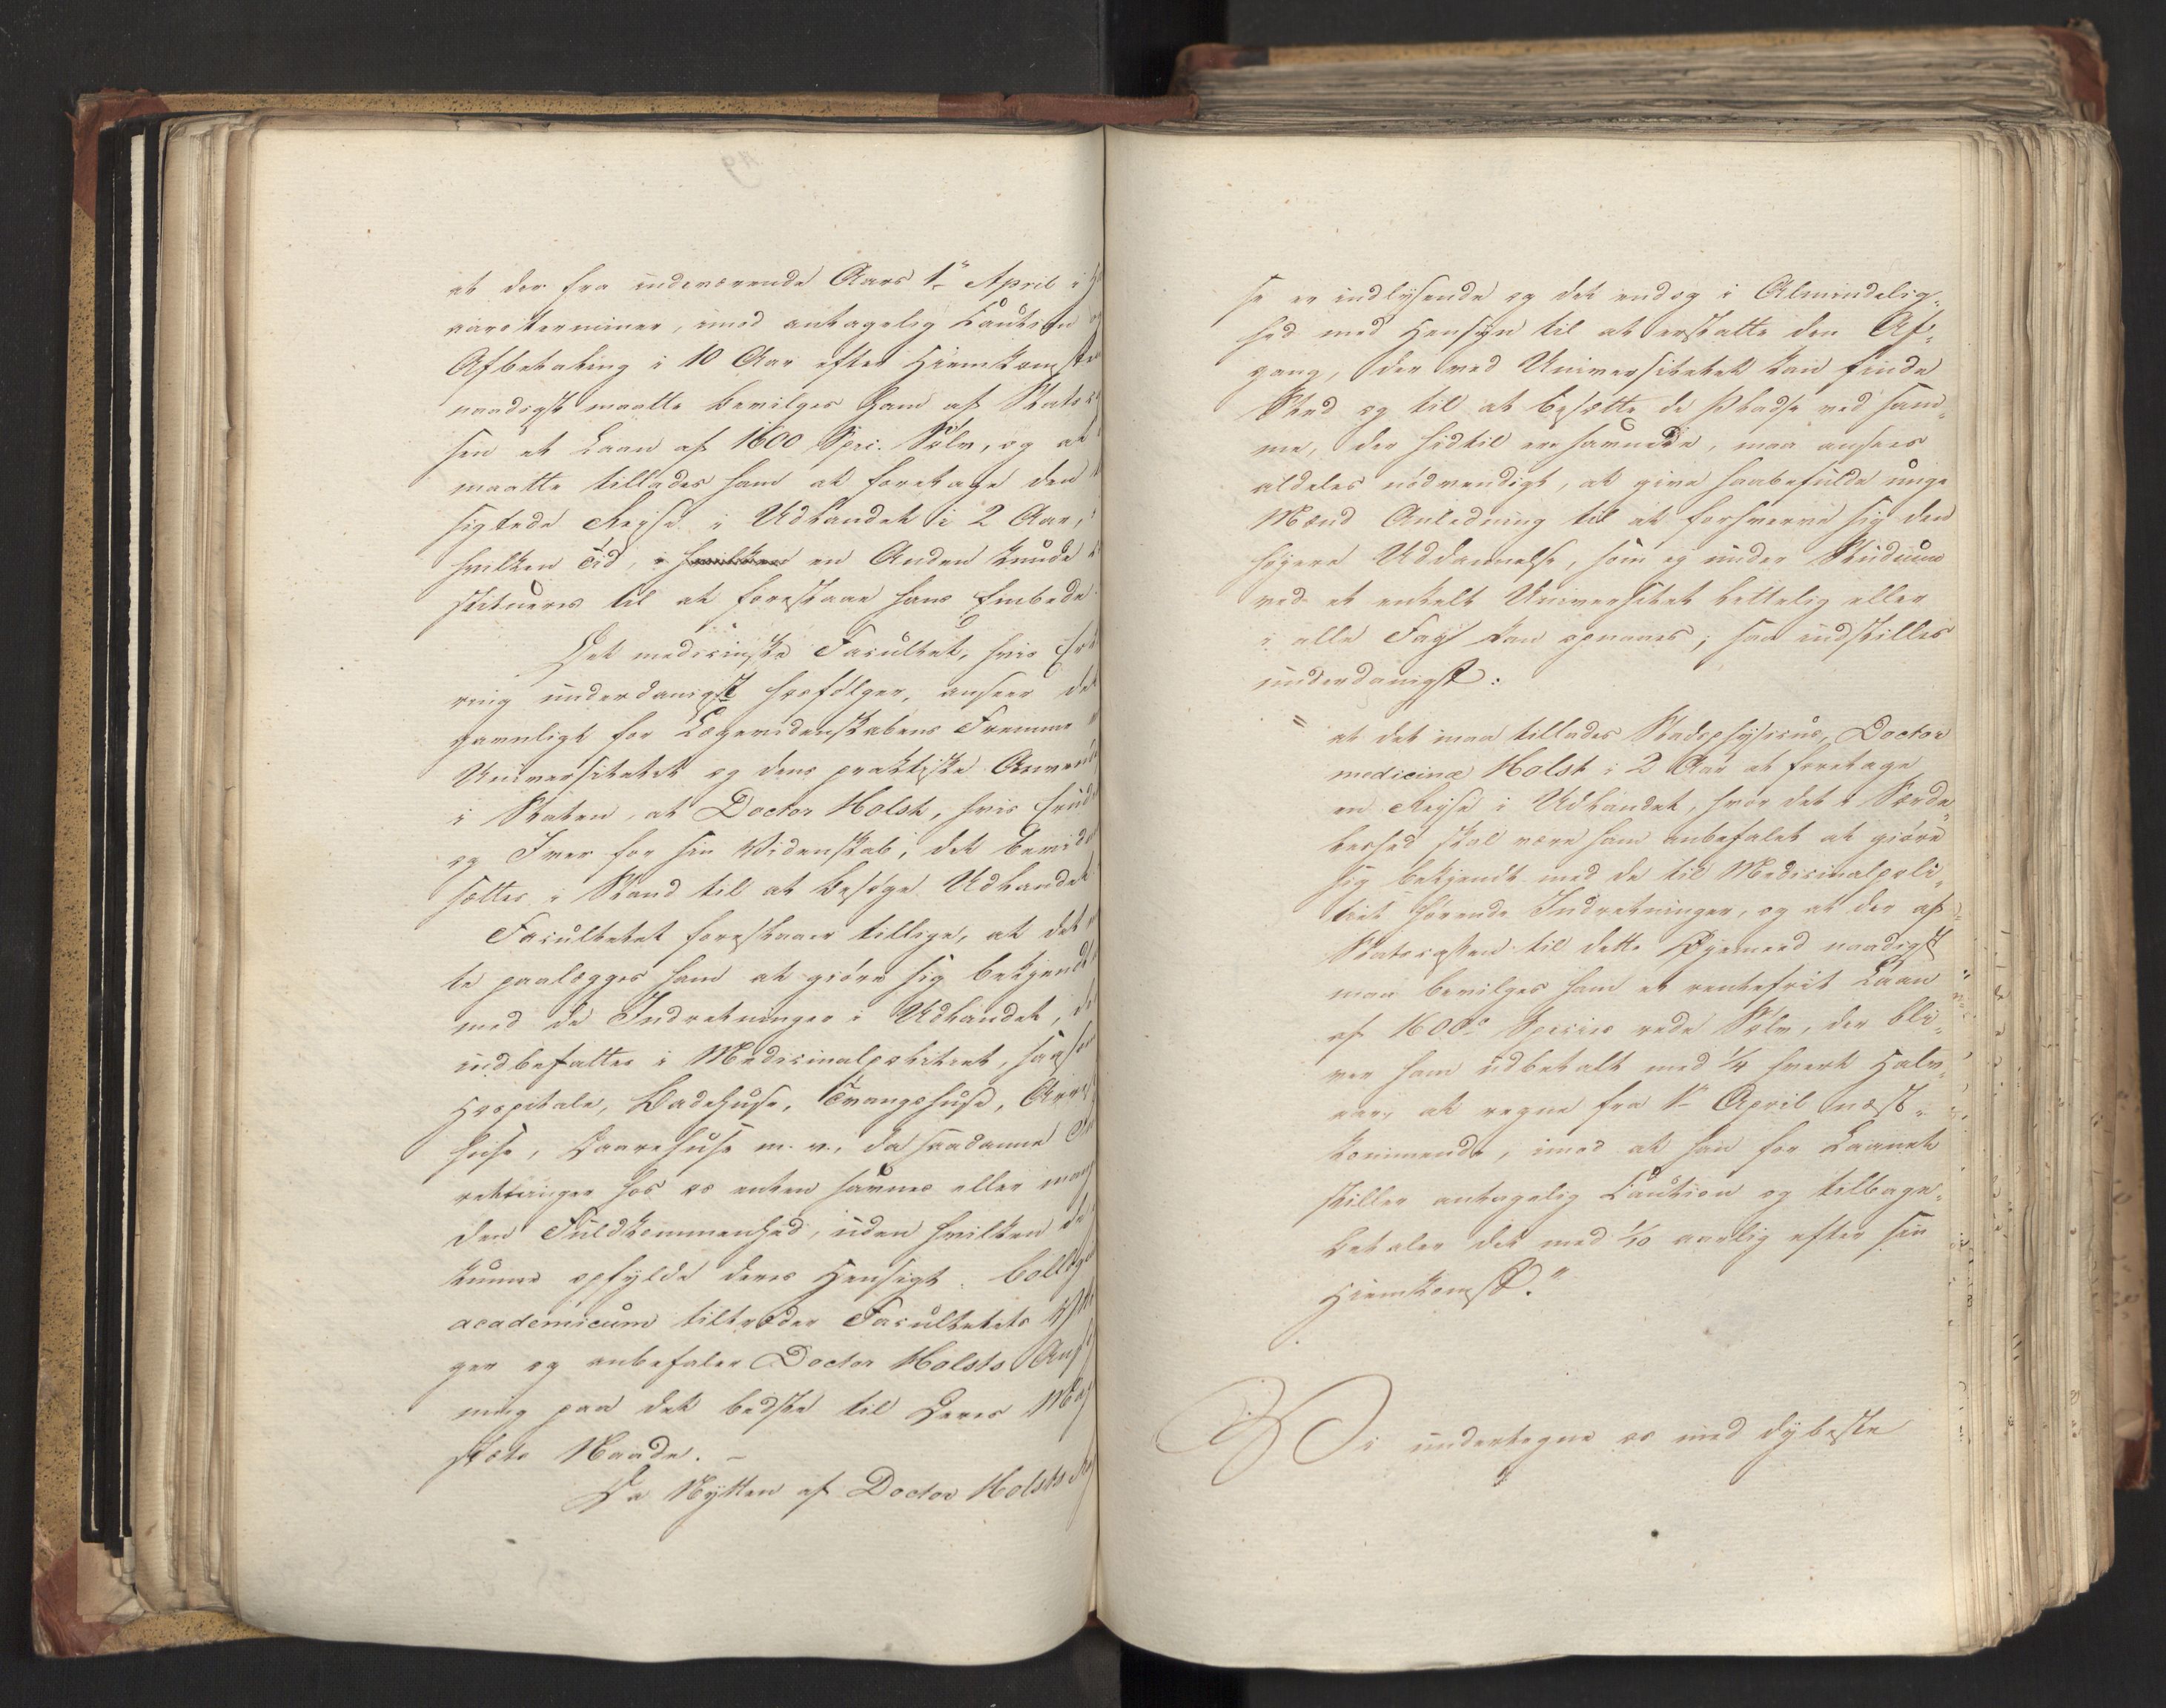 at der fra indeværende Aars 1ste April i
aars Terminer, imod antagelig Caution
Afbetaling i 10 Aar efter Hiemkomsten
naadigst maatte bevilges ham af Stats
sen et Laan af 1600 Spec. Sølv, og at
maatte tillades ham at foretage den
sigtede Reyse i Udlandet i 2 Aar,
hvilken Tid, en Anden kunde
stitueres til at forestaae hans Embede
Det medicinske Facultet, hvis
ring underdanigst hosfølger, anseer det
gavnligt for Lægevidenskabens Fremme
Universitetet og dens praktiske
i Staten, at Doctor Holst, hvis
og Iver for sin Videnskab,
sættes i Stand til at besøge Udlandet
Facultetet foreslaaer tillige, at det
te paalægges ham at giøre sig bekjendt
med de Indretninger i Udlandet,
indbefattes i Medicinalpolitiet, saasom
Hospitale, Badehuse, Tvangshuse,
huse, Daarehuse m. v., da saadanne
retninger hos os enten savnes eller
den Fuldkommenhed, uden hvilken de
kunne opfylde deres Hensigt.
academicum tiltræder Facultetets
ger og anbefaler Doctor Holsts
ning paa det bedste til Deres
stæts Naade. –
Da Nytten af Doctor Holsts
se er indlysende og det endog i Almindelig-
hed med Hensyn til at erstatte den Af-
gang, der ved Universitetet kan finde
Sted og til at besætte de Pladse ved sam-
me, der hidtil ere savnede, maa ansees
aldeles nødvendigt, at give haabefulde unge
Mænd Anledning til at forhverve sig den
høyere Uddannelse, som ey under Studium
ved et enkelt Universitet lettelig eller
i alle Fag kan opnaaes; saa indstilles
underdanigst:
" at det maa tillades Stadsphysicus, Doctor
medicinæ Holst i 2 Aar at foretage
en Reyse i Udlandet, hvor det i Særde-
leshed skal være ham anbefalet at giøre
sig bekjendt med de til Medicinalpoli-
tiet hørende Indretninger, og at der af
Statscassen til dette Øyemeed naadigst
maa bevilges ham et rentefrit Laan
af 1600 Species rede Sølv, der bli-
ver ham udbetalt med 1/4 hvert Halv-
aar, at regne fra 1ste April næst-
kommende, imod at han for Laanet
stiller antagelig Caution og tilbage-
betaler det med 1/10 aarlig efter sin
Hiemkomst."
Vi undertegne os med dybeste